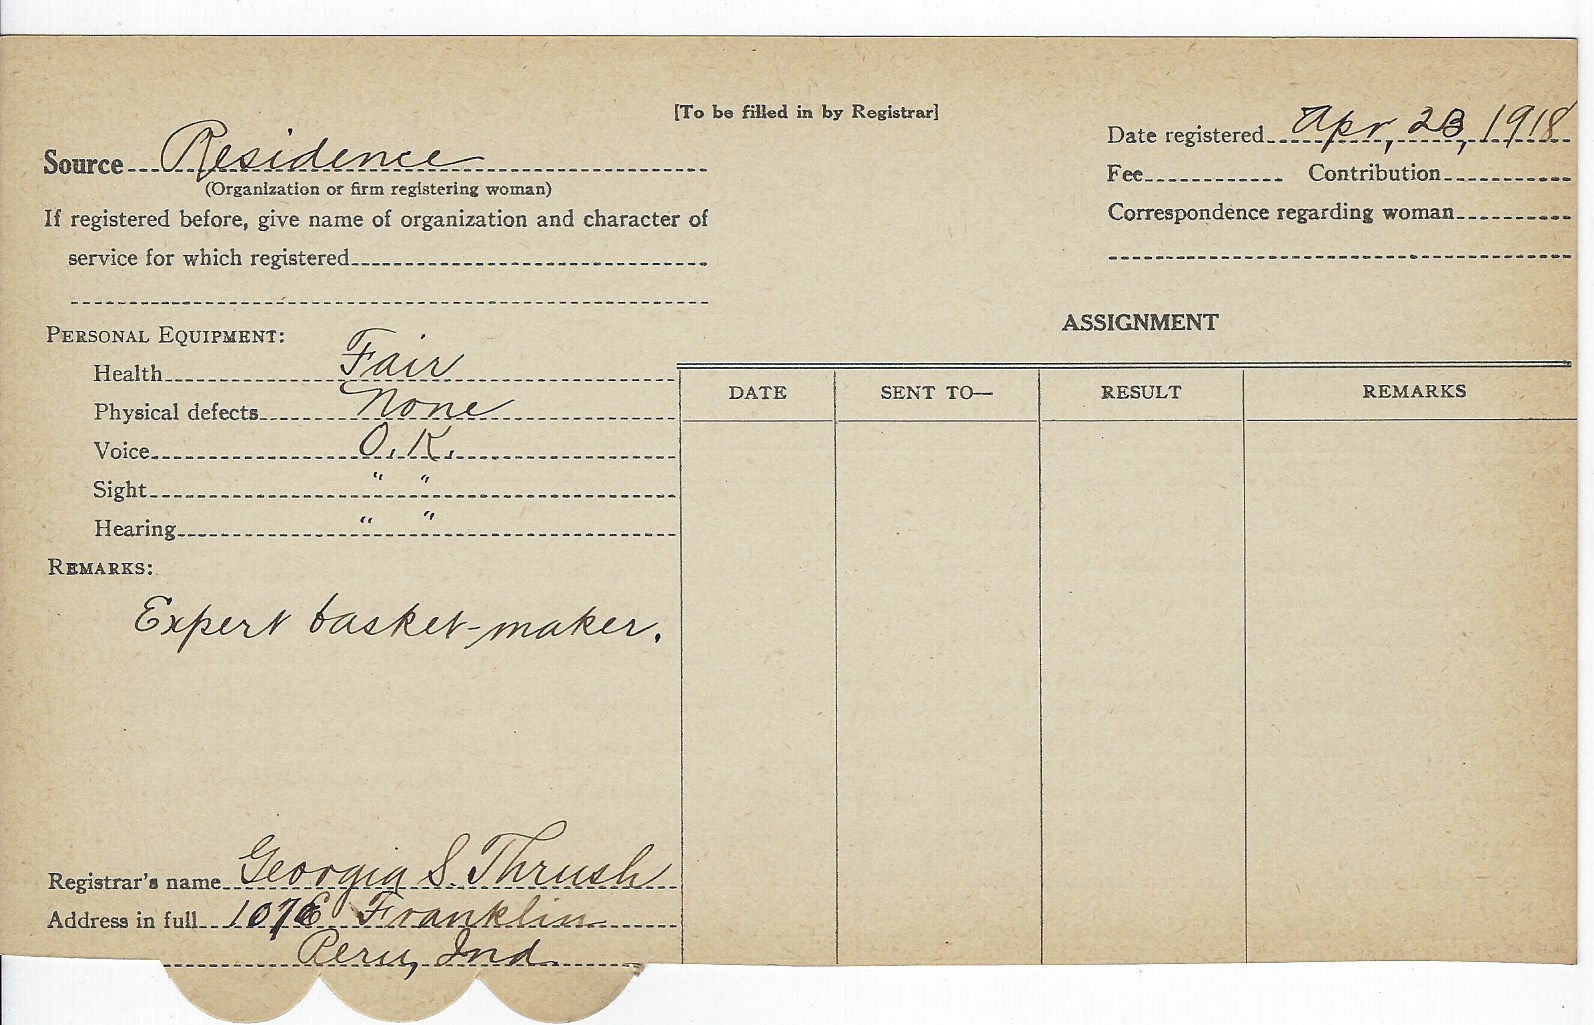 [To be filled in by Registrar]
Source Residence
(Organization or firm registering woman)
If registered before, give name of organization and character of
service for which registered
Date registered Apr, 23, 1918
Fee Contribution
Correspondence regarding woman
PERSONAL EQUIPMENT:
Health Fair
Physical defects None
Voice O.K.
Sight " "
Hearing " "
REMARKS:
Expert basket-maker.
Registrar's name Georgia S. Thrush
Address in full 107 E Franklin
Peru, Ind.
ASSIGNMENT
DATE SENT TO— RESULT REMARKS